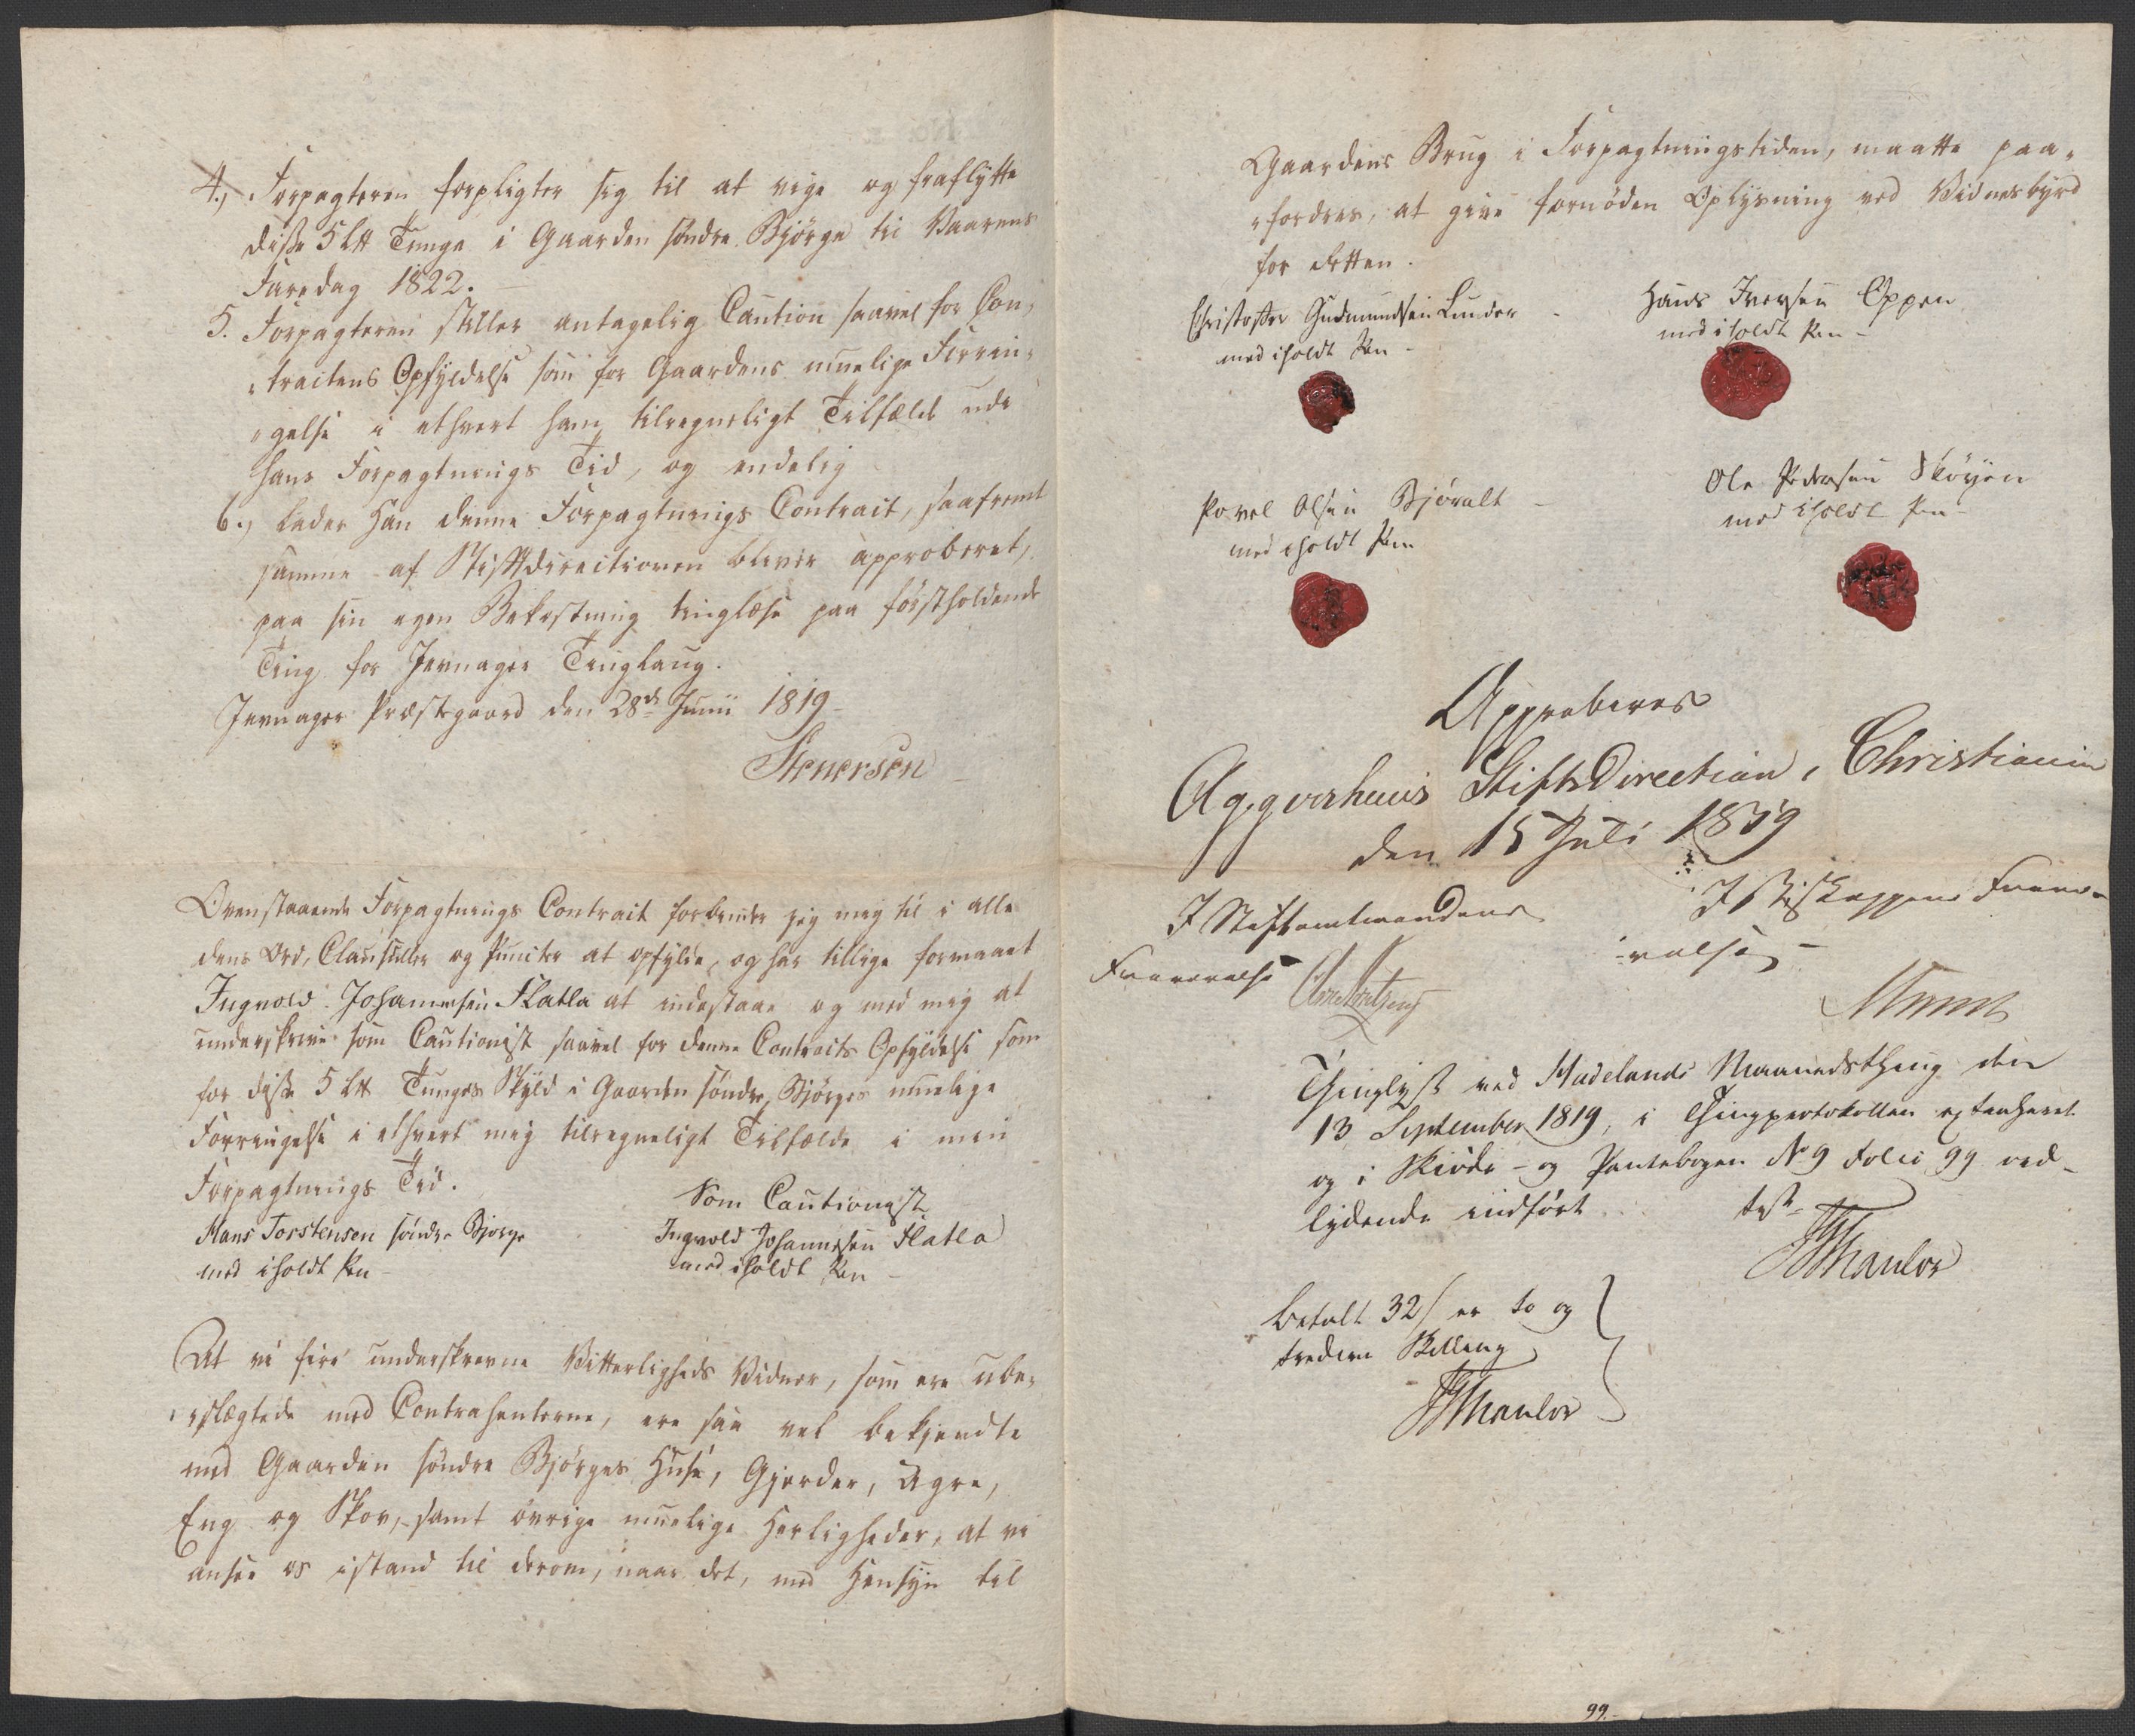 4., Forpagteren forpligter sig til at vige og fraflytte
disse 5 L℔ Tunge i Gaarden søndre Bjørge til Vaarens
Faredag 1822.
5. Forpagteren stiller antagelig Caution saavel for Con„
„traitens Opfyldelse som for Gaardens muelige Forrin„
„gelse i ethvert ham tilregneligt Tilfælde udi
hans Forpagtnings Tid, og endelig
6., lader Han denne Forpagtnings Contrait, saafremt
samme af Stiftdirectionen bliver approberet,
paa sin egen Bekostning tinglæse paa førstholdende
Ting for Jevnager Tinglaug.
Jevnager Præstegaard den 28de Junii 1819
Stenersen
Ovenstaaende Forpagtnings Contrait forbinder jeg mig til i alle
dens Ord, Clausuller og Puncter at opfylde, og har tillige formaaet
Ingvold Johannesen Flatla at indestaae og med mig at
underskrive som Cautionist saavel for denne Contraits Opfyldelse som
for disse 5 L℔ Tunges Skyld i Gaarden søndre Bjørges muelige
Forringelse i ethvert mig tilregneligt Tilfælde i min
Forpagtnings Tid.
Hans Torstensen søndre Bjørge
med iholdt Pen
Som Cautionist
Ingvold Johannesen Flatla
med iholdt Pen
At vi fire underskrevne Vitterligheds Vidner, som ere ube„
„slægtede med Contrahenterne, ere saa vel bekjendte
med Gaarden søndre Bjørges Huse, Gjerder, Agre,
Eng og Skov, samt øvrige muelige Herligheder, at vi
ansee os istand til derom, naar det, med Hensyn til
Gaardens Brug i Forpagtningstiden, maatte paa„
„fordres, at give fornøden Oplysning ved Vidnesbyrd
for Retten.
Christoffer Gudmundsen Lunder
med iholdt Pen
Hans Iversen Oppen
med iholdt Pen
Povel Olsen Bjøralt
med iholdt Pen
Ole Pedersen Skøyen
med iholdt Pen
Approberes
Aggershuus StiftsDirection, Christiania
den 15 Juli 1819
I Stiftamtmandens
Fraværelse
I Biskoppens Fravæ-
relse
Thinglyst ved Hadelands Maanedsthing den
13 September 1819, i Thingprotokollen extraheret
og i Skiøde- og Pantebogen No 9 Folio 99 ved-
lydende indført test
Thaulow
Betalt 32 s er to og
tredive Skilling
Thaulow
99.